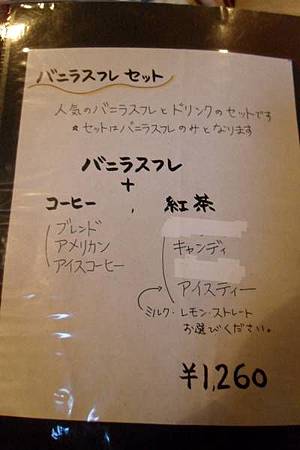 バニラスフレ セット
人気のバニラスフレとドリンクのセットです
*セットはバニラスフレのみとなります
バニラスフレ
+
コーヒー , 紅茶
ブレンド
アメリカン
アイスコーヒー
キャンディ
アイスティー
ミルク・レモン・ストレート
お選びください。
¥1,260